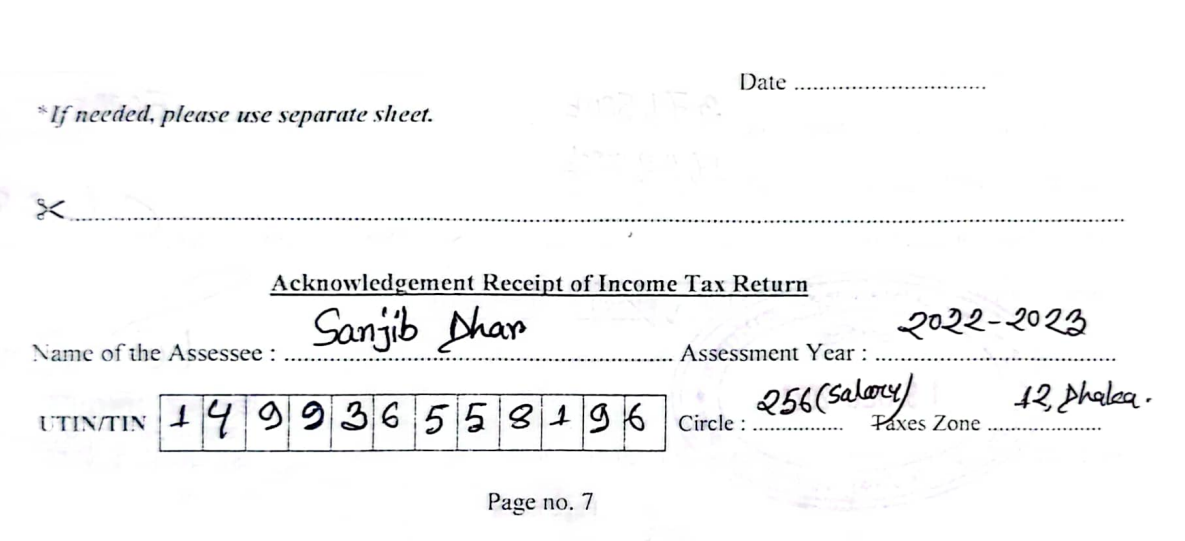 Date ..............................
*If needed, please use separate sheet.
Acknowledgement Receipt of Income Tax Return
Name of the Assessee : Sanjib Dhar Assessment Year : 2022-2023
UTIN/TIN 149936558196 Circle : 256 (Salary) Taxes Zone 12, Dhaka.
Page no. 7